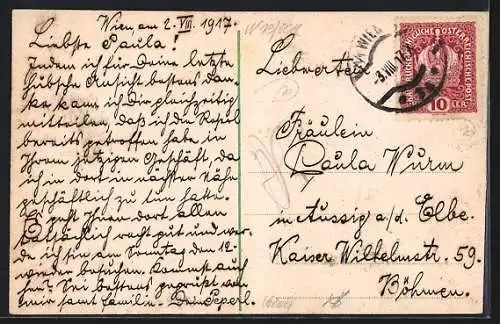 Wien, am 2. VIII. 1917.
Liebste Paula!
Indem ich für Deine letzte
hübsche Ansicht bestens dan-
ke kann ich Dir gleichzeitig
mitteilen, daß ich die
bereits getroffen habe in
Ihrem jetzigen Geschäft, da
ich dort in nächster Nähe
geschäftlich zu tun hatte.
Es geht Ihnen dort allen
tatsächlich recht gut und wer-
de ich sie am Sonntag den 12-
wieder besuchen. Kommst auch
her? Sei bestens gegrüßt von
mir samt Familie. Dein Peperl.
Liebwertes
Fräulein
Paula Wurm
in Aussig a/d. Elbe.
Kaiser Wilhelmstr. 59.
Böhmen.
WIEN
-3.VIII.17
KAISERLICHE KÖNIGLICHE ÖSTERREICHISCHE POST
10 HELLER